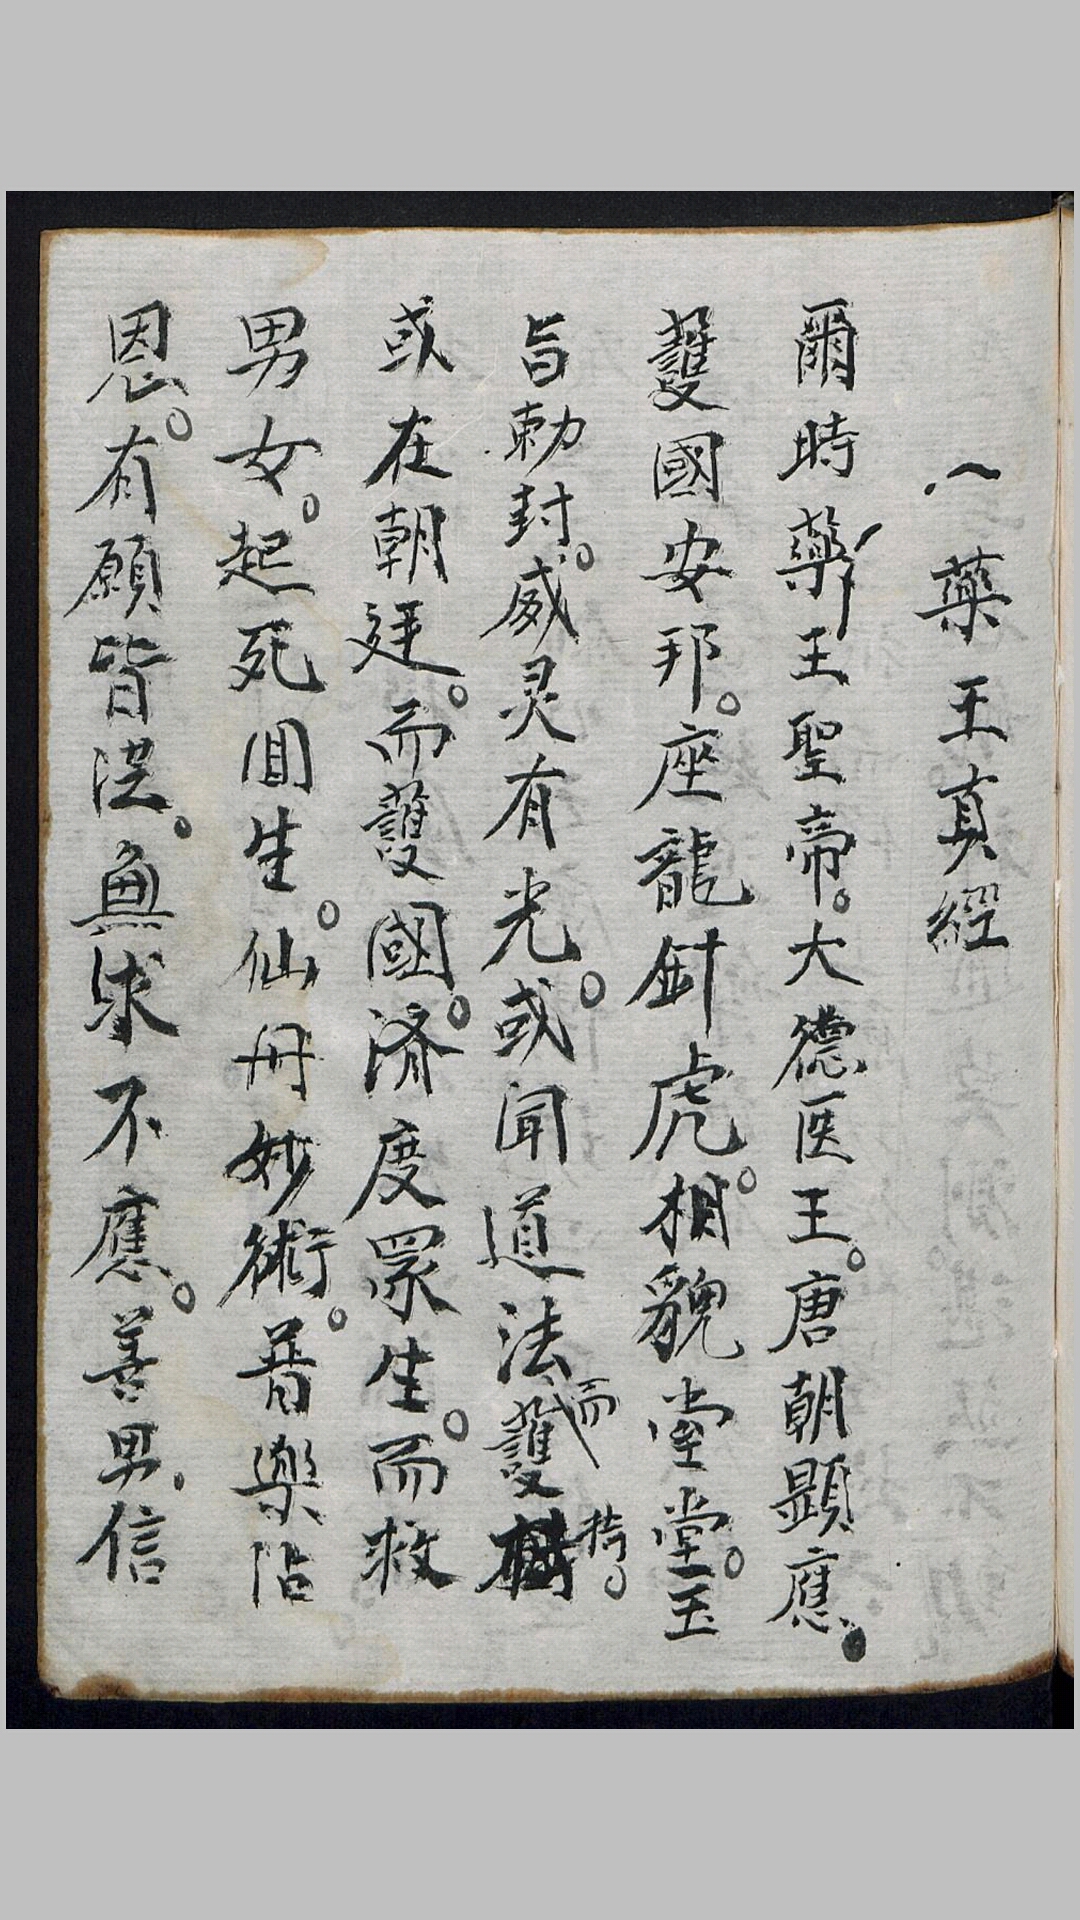 藥王真經
爾時藥王聖帝。大德医王。唐朝顯應。
護國安邦。座龍針虎。相貌堂堂。玉
旨勅封。威灵有光。或聞道法而護持。
或在朝廷。而護國。済度眾生。而救
男女。起死回生。仙丹妙術。普樂沾
恩。有願皆從。無求不應。善男信